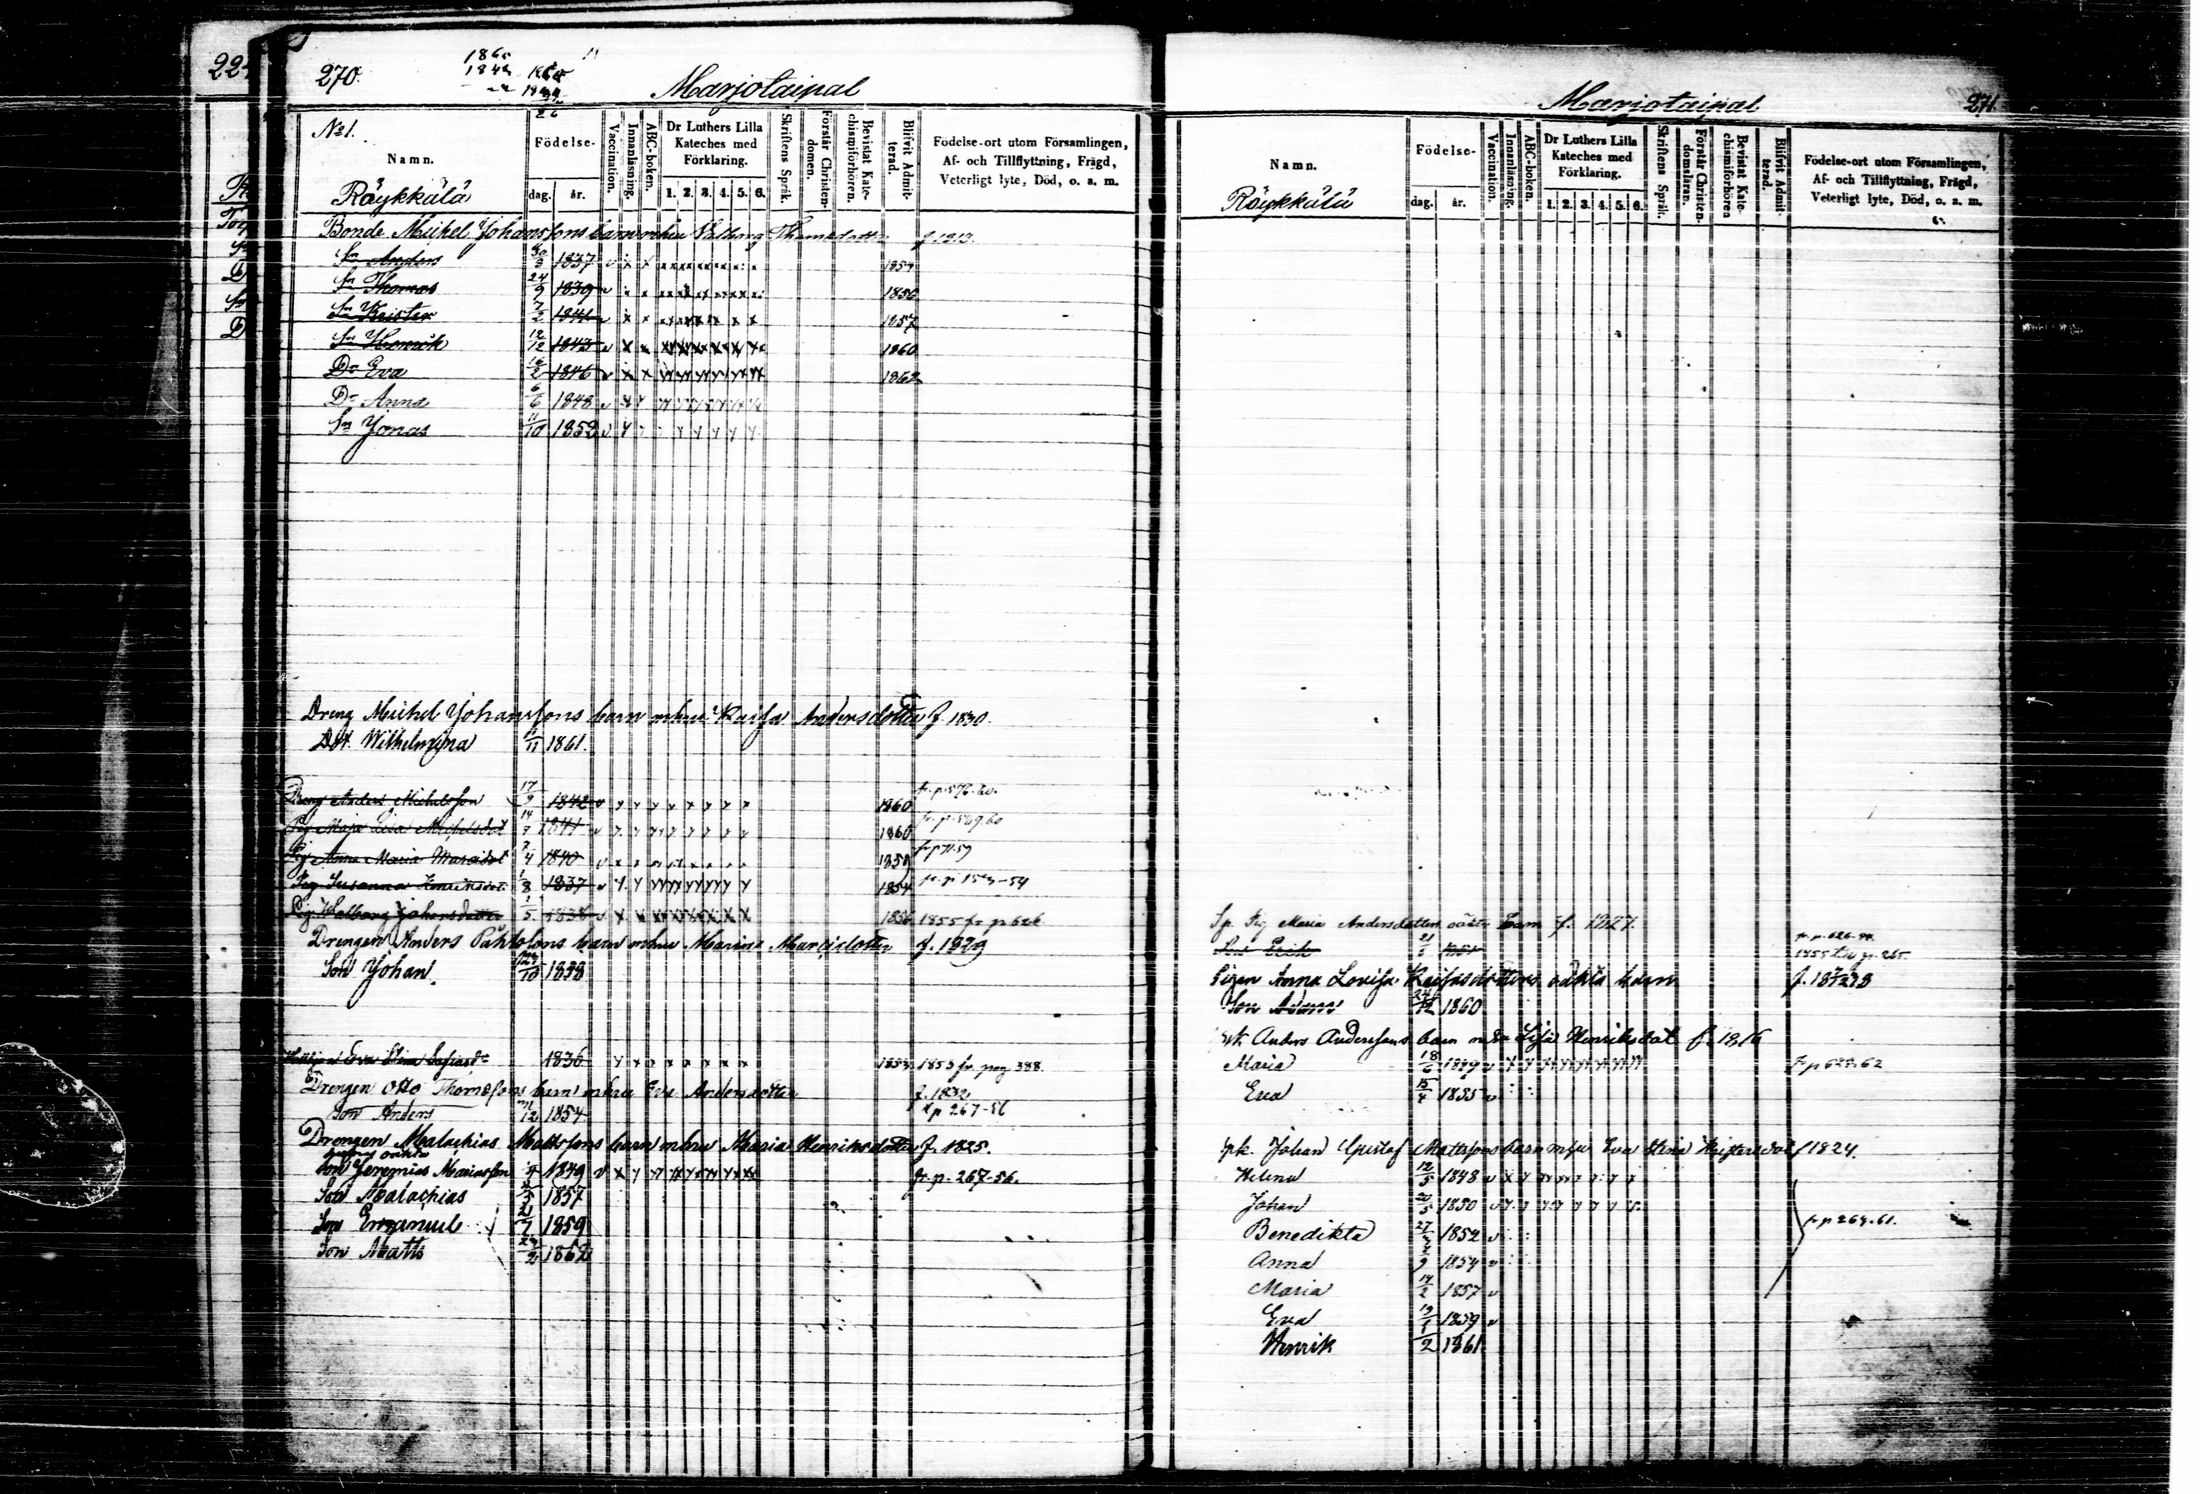 224
270.
Marjotaipal
No 1.
Namn.
Födelse-
dag. år.
Vaccination.
Innanläsning.
ABC-boken.
Dr Luthers Lilla Kateches med Förklaring.
1. 2. 3. 4. 5. 6.
Skriftens Språk.
Förstår Christendomen.
Bevistat Katechismiförhören.
Blifvit Admitterad.
Födelse-ort utom Församlingen,
Af- och Tillflyttning, Frägd,
Veterligt lyte, Död, o. a. m.
Röykkälä
Bonde Michel Johanssons barn mhu Valborg Thomasdotter f. 1813.
Sn Anders 30/3 1837 1854
Sn Thomas 24/9 1839 1856
Sn Krister 7/2 1841 1857
Sn Henrik 12/12 1843 1860
Dr Eva 16/2 1846 1862
Dr Anna 6/6 1848
Sn Jonas 11/10 1852
Dreng Michel Johanssons barn mhu Kaisa Andersdotter f. 1830.
Dot. Wilhelmina 1861.
Dreng Anders Michelsson 17/9 1842 1860
Pig Maja Lisa Michelsdot 1841 1860
Pig Anna Maria 1840 1859
Pig Susanna Henricsdot. 1/8 1837 1854
Pig Walborg Johansdotter 1838 1856 1855 fr. p 626
Drengen Anders barn mhu Maria f. 1829
Son Johan. 1858
Eva Stina 1836 1853 1853 fr. pag 388.
Drengen Otto Thomassons barn mhu Eva Andersdotter f. 1832
Son Anders 1854 fr p 267-56
Drengen Malachias Mattssons barn mhu Maria Henriksdotter f. 1825.
Son Jeremias Mariasson 1849 fr. p. 267-56.
Son Malachias 1857
Son Emanuel 21/7 1859
Son Matts 1862
Marjotaipal
271.
Namn.
Födelse-
dag. år.
Vaccination.
Innanläsning.
ABC-boken.
Dr Luthers Lilla Kateches med Förklaring.
1. 2. 3. 4. 5. 6.
Skriftens Språk.
Förstår Christendomsläran.
Bevistat Katechismiförhören
Blifvit Admitterad.
Födelse-ort utom Församlingen,
Af- och Tillflyttning, Frägd,
Veterligt lyte, Död, o. a. m.
Röykkälä
Sp. Pig Maria Andersdotters oäkta barn f. 1827.
Son Erik
1855 till p. 265
Pigan Anna Lovisa Kaisasdotters oäkta barn
Son Adam 24/12 1860
Anders Anderssons barn Lisa Henriksdot f. 1816
Maria 18/6 1849 Fr p 62
Eva 15/4 1855
spk. Johan Gustaf Mattssons barn mhu Eva Stina Kristersdot f 1824.
Helena 12/5 1848
Johan 20/5 1850
Benedikta 1852 fr p 264.61.
Anna 1854
Maria 14/2 1857
Eva 1859
Henrik 1861